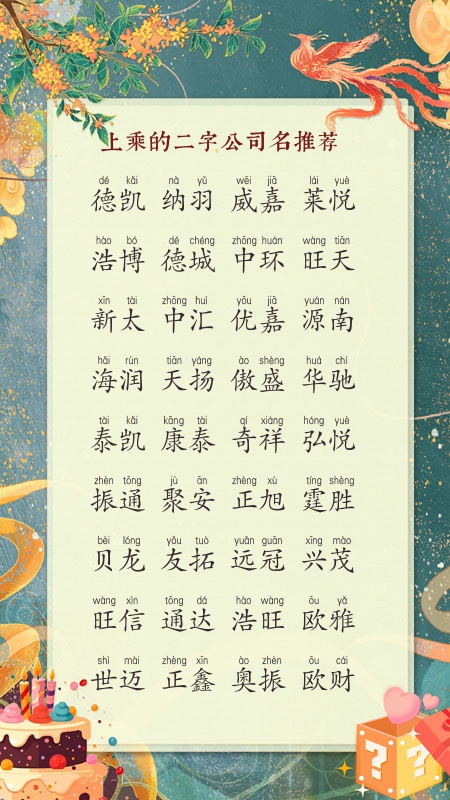 上乘的二字公司名推荐
dé kǎi nà yǔ wēi jiā lái yuè
德凯 纳羽 威嘉 莱悦
hào bó dé chéng zhōng huán wàng tiān
浩博 德城 中环 旺天
xīn tài zhōng huì yōu jiā yuán nán
新太 中汇 优嘉 源南
hǎi rùn tiān yáng ào shèng huá chí
海润 天扬 傲盛 华驰
tài kǎi kāng tài qí xiáng hóng yuè
泰凯 康泰 奇祥 弘悦
zhèn tōng jù ān zhèng xù tíng shèng
振通 聚安 正旭 霆胜
bèi lóng yǒu tuò yuǎn guān xīng mào
贝龙 友拓 远冠 兴茂
wàng xìn tōng dá hào wàng ōu yǎ
旺信 通达 浩旺 欧雅
shì mài zhèng xīn ào zhèn ōu cái
世迈 正鑫 奥振 欧财
? ?